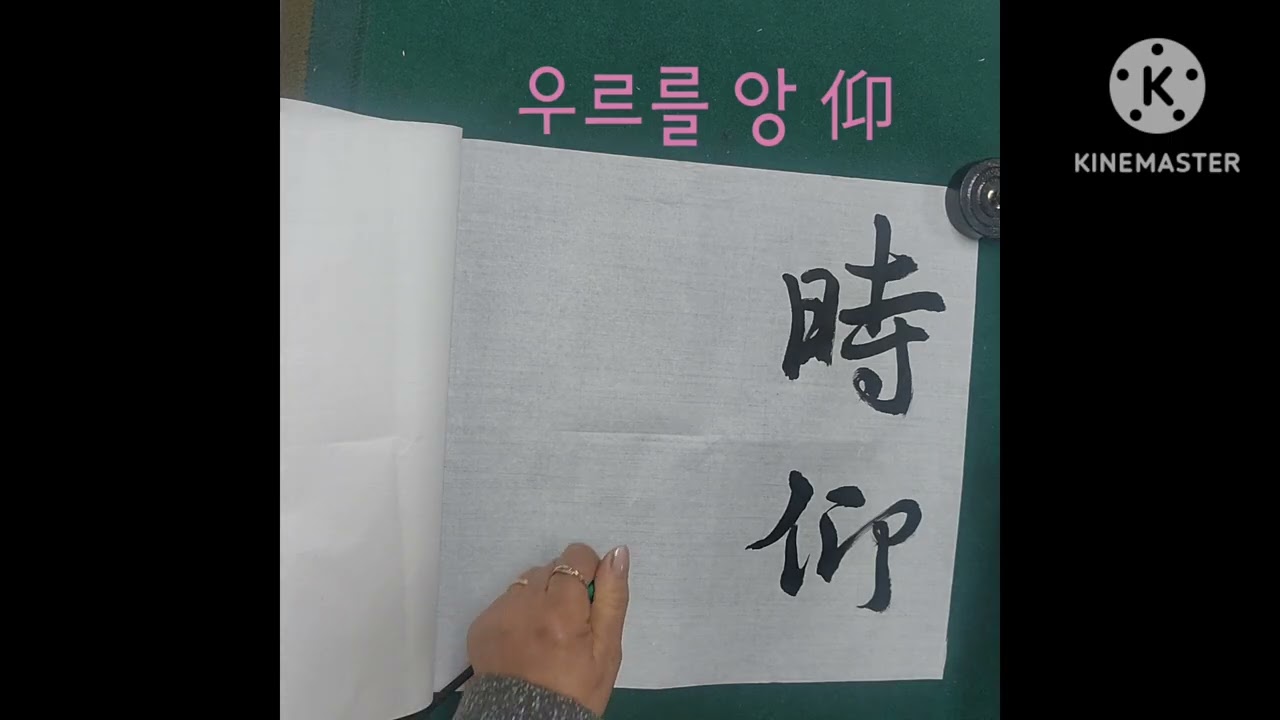 우르를 앙 仰
KINEMASTER
時
仰